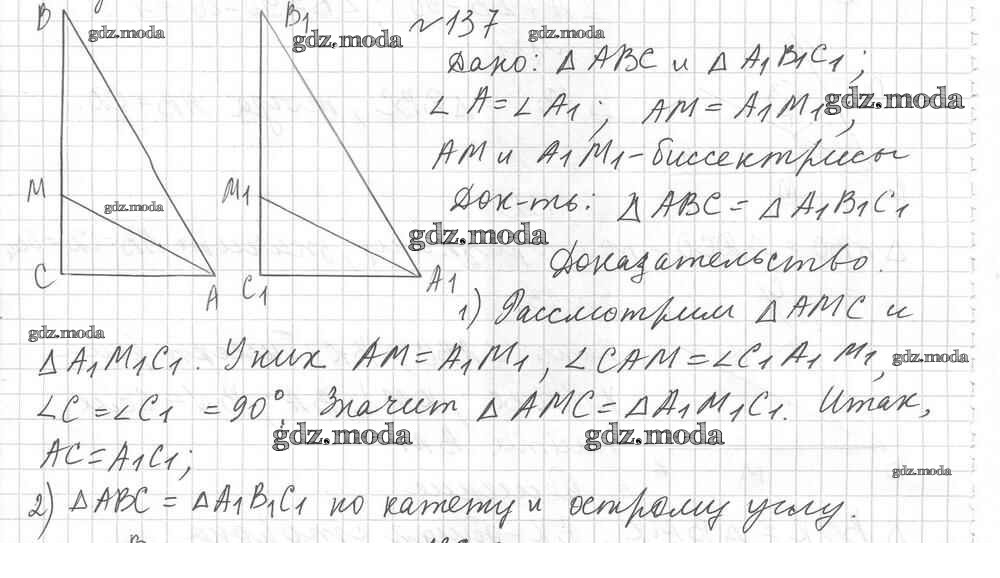 B B1 №137
gdz.moda gdz.moda gdz.moda
Дано: Δ ABC и Δ A1B1C1;
∠ A = ∠ A1; AM = A1M1; gdz.moda
AM и A1M1 - биссектрисы
M M1 Док-ть: Δ ABC = Δ A1B1C1
gdz.moda
gdz.moda
Доказательство.
C A C1 A1
1) Рассмотрим Δ AMC и
gdz.moda
Δ A1M1C1. У них AM = A1M1, ∠CAM = ∠C1A1M1, gdz.moda
∠C = ∠C1 = 90°. Значит Δ AMC = Δ A1M1C1. Итак,
gdz.moda gdz.moda
AC = A1C1;
gdz.moda
2) Δ ABC = Δ A1B1C1 по катету и острому углу.